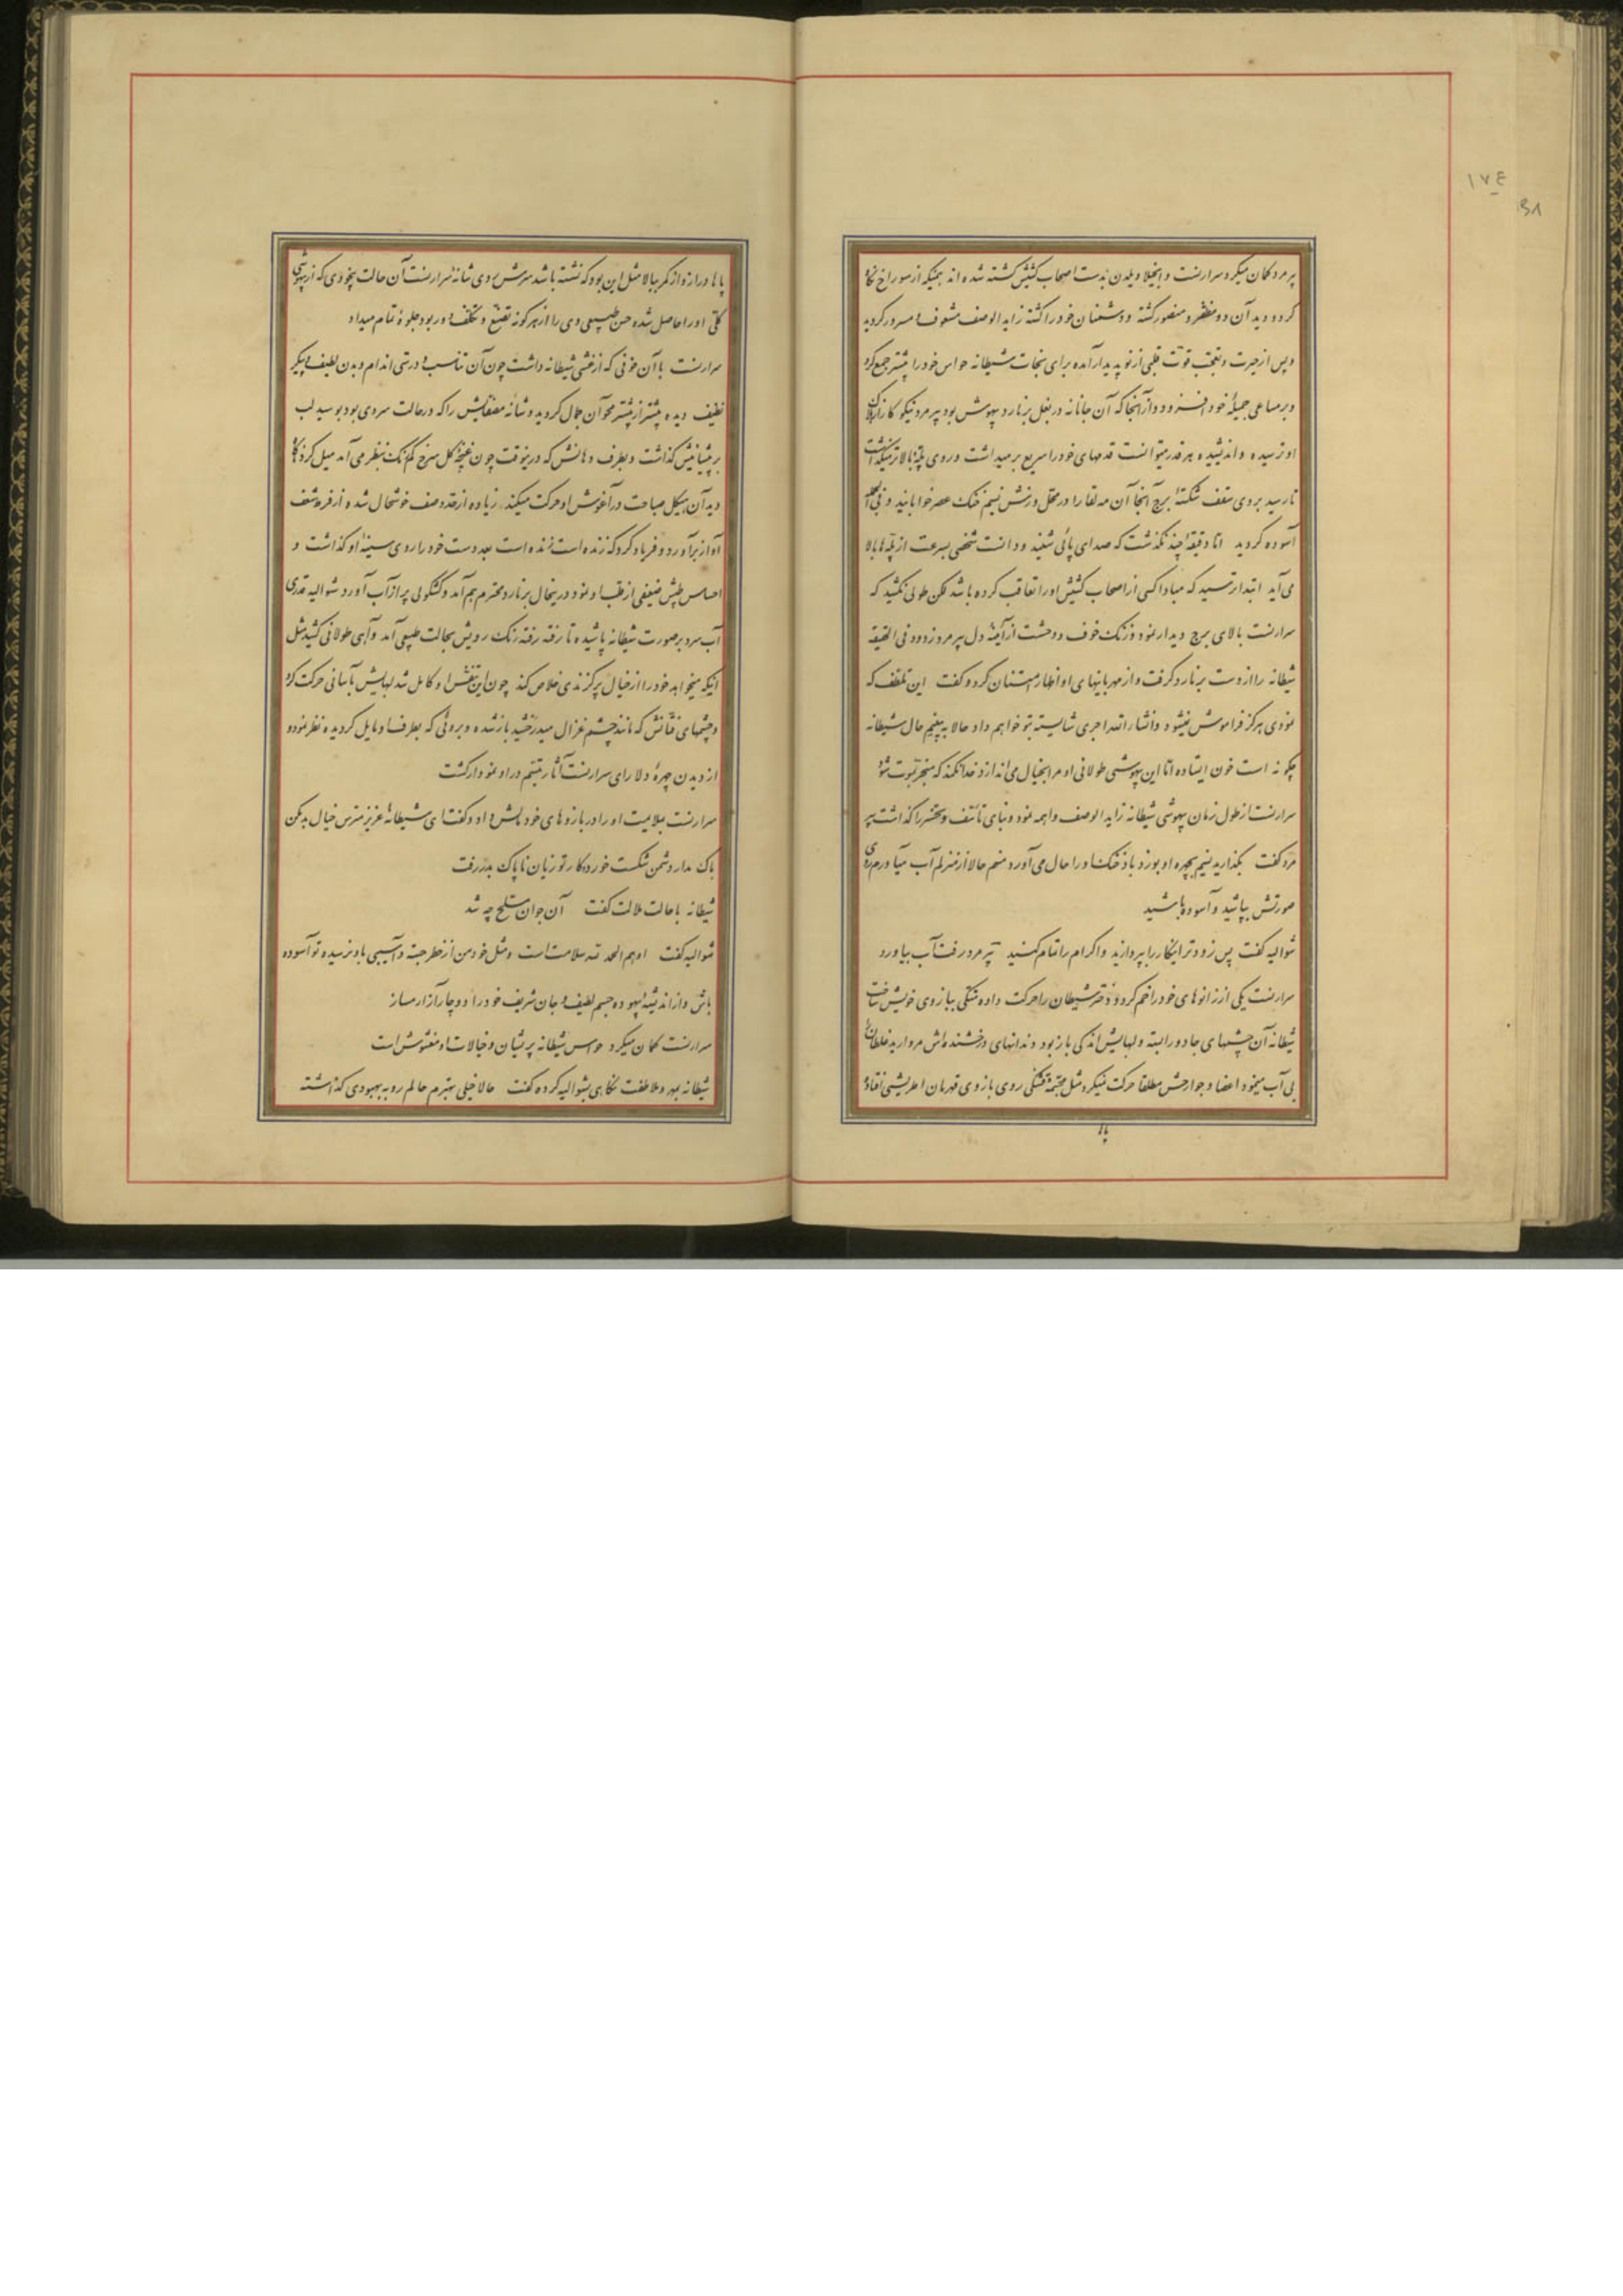 ۱۷۴
۳۸
پیر مرد گمان میکرد سرارنست و انجیلا ویلدن بدست اصحاب کشیش کشته شده اند همینکه از سوراخ نگاه
کرد و دید آن دو مظفر و منصور گشته و دشمنان خود را کشته زاید الوصف مشعوف و مسرور گردید
و پس از حیرت و تعجب قوت قلبی از نو پدیدار آمده برای نجات شیطانه حواس خود را بیشتر جمع کرد
و بر مساعی جمیلهٔ خود افزود و از آنجا که آن جانانه در بغل برنارد بیهوش بود پیر مرد نیکو کار از
او ترسیده و اندیشیده هر قدر میتوانست قدمهای خود را سریع بر میداشت و روی پلهٔ بالاتر میگذاشت
تا رسید بروی سقف شکستهٔ برج آنجا آن مه لقا را در محل وزش نسیم خنک عصر خوابانید و فی الجمله
آسوده گردید اما دقیقهٔ چند نگذشت که صدای پائی شنید و دانست شخصی بسرعت از پله ها بالا
می آید ابتدا ترسید که مبادا کسی از اصحاب کشیش او را تعاقب کرده باشد لکن طولی نکشید که
سرارنست بالای برج دیدار نمود و زنگ خوف و وحشت از آینهٔ دل پیر مرد زدود فی الحقیقه
شیطانه را از دست برنارد گرفت و از مهربانیهای او اظهار امتنان کرد و گفت این تلطف که
نمودی هرگز فراموش نمیشود و انشاء الله اجری شایسته بتو خواهم داد حالا ببینم حال شیطانه
چگونه است خون ایستاده اما این بیهوشی طولانی او مرا بخیال می اندازد خدا نکند که منجر بموت شود
سرارنست از طول زمان بیهوشی شیطانه زاید الوصف واهمه نمود و بنای تأسف و تحسر را گذاشت پیر
مرد گفت بگذارید نسیم بچهره او بوزد باد خنک او را حال می آورد منهم حالا از منزلم آب میآورم روی
صورتش بپاشید و آسوده باشید
شوالیه گفت پس زودتر اینکار را بپردازید و اکرام را تمام کنید پیر مرد رفت آب بیاورد
سرارنست یکی از زانوهای خود را خم کرد و دختر شیطان را حرکت داده متکی ببازوی خویش ساخت
شیطانه آن چشمهای جادو را بسته و لبهایش اندکی باز بود و دندانهای درخشنده اش مروارید غلطان
بی آب مینمود اعضا و جوارحش مطلقا حرکت نمیکرد مثل مجسمهٔ قشنگی روی بازوی قهرمان اطریشی افتاده
پا
پاها دراز و از کمر ببالا مثل این بود که نشسته باشد سرش روی شانهٔ سرارنست آن حالت بیخودی که از بیهوشی
کلی او را حاصل شده حسن طبیعی وی را از هر گونه تصنع و تکلف دور بود جلوهٔ تمام میداد
سرارنست با آن خوفی که از غشی شیطانه داشت چون آن تناسب و درستی اندام و بدن لطیف و پیکر
نظیف دیده بیشتر از پیشتر محو آن جمال گردید و شانه مصقایش را که در حالت سردی بود بوسید لب
بر پیشانیش گذاشت و بطرف دهانش که درینوقت چون غنچهٔ گل سرخ کم رنگ بنظر می آمد میل کرد
دید آن هیکل صباحت در آغوش او حرکت میکند زیاده از حد وصف خوشحال شده و از فرط شعف
آواز برآورد و فریاد کرد که زنده است زنده است بعد دست خود را روی سینهٔ او گذاشت و
احساس طپش ضعیفی از قلب او نمود درینحال برنارد محترم هم آمد و کشکولی پر از آب آورد شوالیه قدری
آب سرد بر صورت شیطانه پاشیده تا رفته رفته رنگ رویش بحالت طبیعی آمد و آهی طولانی کشید مثل
اینکه میخواهد خود را از خیال پر گزندی خلاص کند چون این تنفس او کامل شد لبهایش بآسانی حرکت کرد
و چشمهای فتانش که مانند چشم غزال میدرخشید باز شده و بروئی که بطرف او مایل گردیده نظر نمود و
از دیدن چهرهٔ دلارای سرارنست آثار تبسم در او نمودار گشت
سرارنست بملایمت او را در بازوهای خود بالش داد و گفت ای شیطانهٔ عزیز مترس خیال بد مکن
باک مدار دشمن شکست خورد و کار تو زیان ناپاک بدر رفت
شیطانه با حالت ملالت گفت آن جوان مسلح چه شد
شوالیه گفت او هم الحمد لله سلامت است و مثل خود من از خطر جسته و آسیبی باو نرسیده تو آسوده
باش و از اندیشهٔ بیهوده جسم لطیف و جان شریف خود را دوچار آزار مساز
سرارنست گمان میکرد حواس شیطانه پریشان و خیالات او مغشوش است
شیطانه بمهر و ملاطفت نگاهی بشوالیه کرده گفت حالا خیلی بهترم حالم رو به بهبودی گذاشته